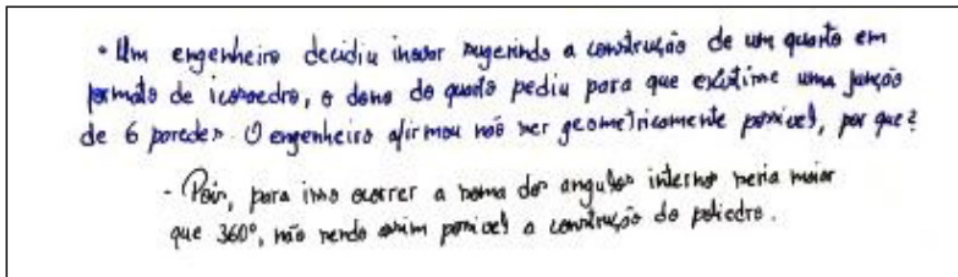 • Um engenheiro decidiu inovar sugerindo a construção de um quarto em
formato de icosaedro, o dono do quarto pediu para que existisse uma junção
de 6 paredes. O engenheiro afirmou não ser geometricamente possível, por que?
- Pois, para isso ocorrer a soma dos angulos internos seria maior
que 360°, não sendo assim possível a construção do poliedro.